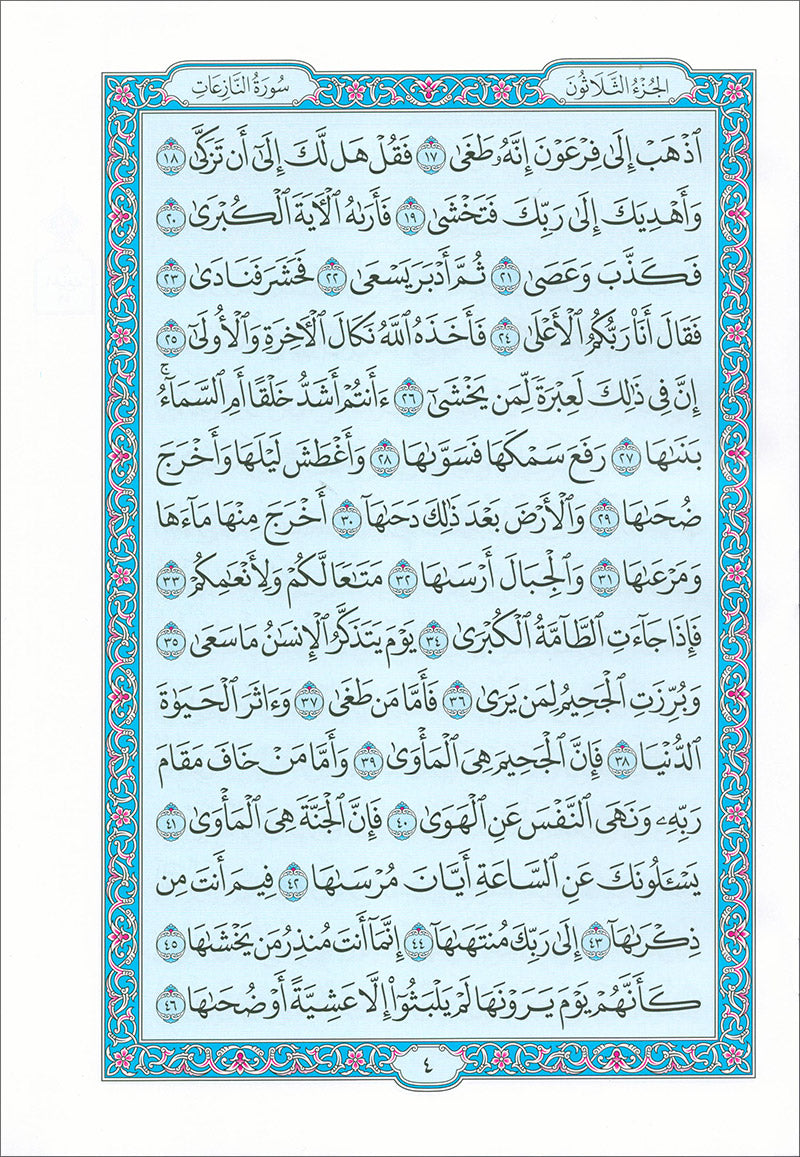 الجُزْءُ الثَّلَاثُونَ
سُورَةُ النَّازِعَاتِ
ٱذۡهَبۡ إِلَىٰ فِرۡعَوۡنَ إِنَّهُۥ طَغَىٰ ١٧ فَقُلۡ هَل لَّكَ إِلَىٰٓ أَن تَزَكَّىٰ ١٨
وَأَهۡدِيَكَ إِلَىٰ رَبِّكَ فَتَخۡشَىٰ ١٩ فَأَرَىٰهُ ٱلۡأٓيَةَ ٱلۡكُبۡرَىٰ ٢٠
فَكَذَّبَ وَعَصَىٰ ٢١ ثُمَّ أَدۡبَرَ يَسۡعَىٰ ٢٢ فَحَشَرَ فَنَادَىٰ ٢٣
فَقَالَ أَنَا۠ رَبُّكُمُ ٱلۡأَعۡلَىٰ ٢٤ فَأَخَذَهُ ٱللَّهُ نَكَالَ ٱلۡأٓخِرَةِ وَٱلۡأُولَىٰٓ ٢٥
إِنَّ فِي ذَٰلِكَ لَعِبۡرَةٗ لِّمَن يَخۡشَىٰٓ ٢٦ ءَأَنتُمۡ أَشَدُّ خَلۡقًا أَمِ ٱلسَّمَآءُۚ
بَنَىٰهَا ٢٧ رَفَعَ سَمۡكَهَا فَسَوَّىٰهَا ٢٨ وَأَغۡطَشَ لَيۡلَهَا وَأَخۡرَجَ
ضُحَىٰهَا ٢٩ وَٱلۡأَرۡضَ بَعۡدَ ذَٰلِكَ دَحَىٰهَآ ٣٠ أَخۡرَجَ مِنۡهَا مَآءَهَا
وَمَرۡعَىٰهَا ٣١ وَٱلۡجِبَالَ أَرۡسَىٰهَا ٣٢ مَتَٰعٗا لَّكُمۡ وَلِأَنۡعَٰمِكُمۡ ٣٣
فَإِذَا جَآءَتِ ٱلطَّآمَّةُ ٱلۡكُبۡرَىٰ ٣٤ يَوۡمَ يَتَذَكَّرُ ٱلۡإِنسَٰنُ مَا سَعَىٰ ٣٥
وَبُرِّزَتِ ٱلۡجَحِيمُ لِمَن يَرَىٰ ٣٦ فَأَمَّا مَن طَغَىٰ ٣٧ وَءَاثَرَ ٱلۡحَيَوٰةَ
ٱلدُّنۡيَا ٣٨ فَإِنَّ ٱلۡجَحِيمَ هِيَ ٱلۡمَأۡوَىٰ ٣٩ وَأَمَّا مَنۡ خَافَ مَقَامَ
رَبِّهِۦ وَنَهَى ٱلنَّفۡسَ عَنِ ٱلۡهَوَىٰ ٤٠ فَإِنَّ ٱلۡجَنَّةَ هِيَ ٱلۡمَأۡوَىٰ ٤١
يَسۡـَٔلُونَكَ عَنِ ٱلسَّاعَةِ أَيَّانَ مُرۡسَىٰهَا ٤٢ فِيمَ أَنتَ مِن
ذِكۡرَىٰهَآ ٤٣ إِلَىٰ رَبِّكَ مُنتَهَىٰهَآ ٤٤ إِنَّمَآ أَنتَ مُنذِرُ مَن يَخۡشَىٰهَا ٤٥
كَأَنَّهُمۡ يَوۡمَ يَرَوۡنَهَا لَمۡ يَلۡبَثُوٓاْ إِلَّا عَشِيَّةً أَوۡ ضُحَىٰهَا ٤٦
٤